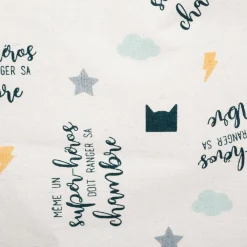 super-héros
RANGER SA
chambre
chambre
RANGER SA
héros
MÊME UN
super-héros
DOIT RANGER SA
chambre